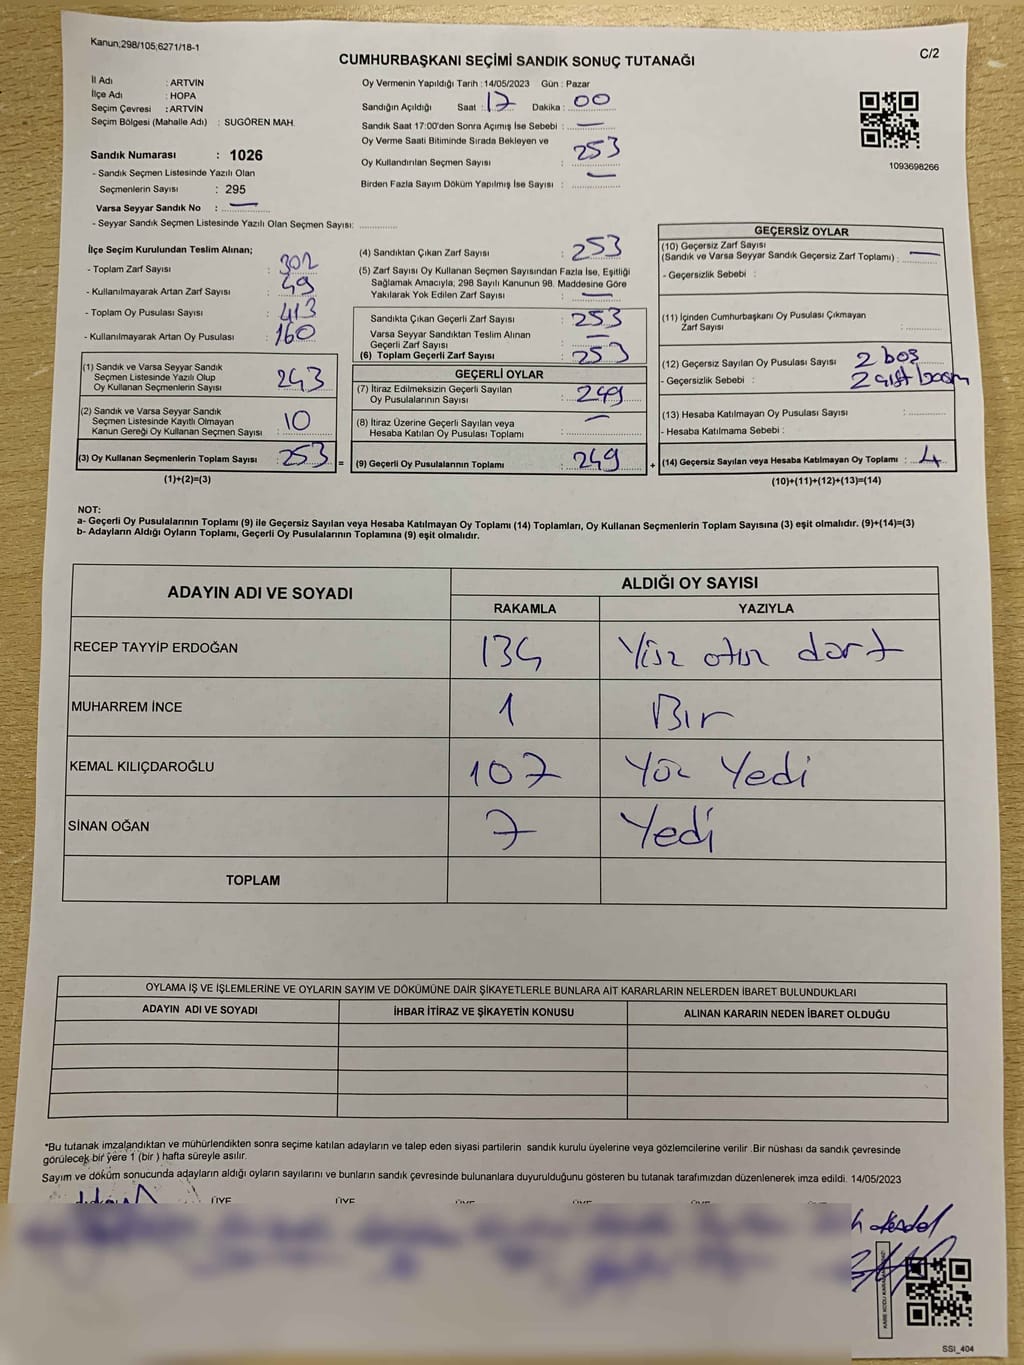 Kanun;298/105;6271/18-1
C/2
CUMHURBAŞKANI SEÇİMİ SANDIK SONUÇ TUTANAĞI
İl Adı : ARTVİN
İlçe Adı : HOPA
Seçim Çevresi : ARTVİN
Seçim Bölgesi (Mahalle Adı) : SUGÖREN MAH.
Sandık Numarası : 1026
- Sandık Seçmen Listesinde Yazılı Olan
Seçmenlerin Sayısı : 295
Varsa Seyyar Sandık No : —
- Seyyar Sandık Seçmen Listesinde Yazılı Olan Seçmen Sayısı:
Oy Vermenin Yapıldığı Tarih : 14/05/2023 Gün : Pazar
Sandığın Açıldığı Saat : 17 Dakika : 00
Sandık Saat 17:00'den Sonra Açımış İse Sebebi : —
Oy Verme Saati Bitiminde Sırada Bekleyen ve
Oy Kullandırılan Seçmen Sayısı : 253
Birden Fazla Sayım Döküm Yapılmış İse Sayısı : —
1093698266
İlçe Seçim Kurulundan Teslim Alınan;
- Toplam Zarf Sayısı : 302
- Kullanılmayarak Artan Zarf Sayısı : 49
- Toplam Oy Pusulası Sayısı : 413
- Kullanılmayarak Artan Oy Pusulası : 160
(1) Sandık ve Varsa Seyyar Sandık
Seçmen Listesinde Yazılı Olup
Oy Kullanan Seçmenlerin Sayısı : 243
(2) Sandık ve Varsa Seyyar Sandık
Seçmen Listesinde Kayıtlı Olmayan
Kanun Gereği Oy Kullanan Seçmen Sayısı : 10
(3) Oy Kullanan Seçmenlerin Toplam Sayısı : 253
=
(1)+(2)=(3)
(4) Sandıktan Çıkan Zarf Sayısı : 253
(5) Zarf Sayısı Oy Kullanan Seçmen Sayısından Fazla İse, Eşitliği
Sağlamak Amacıyla, 298 Sayılı Kanunun 98. Maddesine Göre
Yakılarak Yok Edilen Zarf Sayısı : —
Sandıkta Çıkan Geçerli Zarf Sayısı : 253
Varsa Seyyar Sandıktan Teslim Alınan
Geçerli Zarf Sayısı : —
(6) Toplam Geçerli Zarf Sayısı : 253
GEÇERLİ OYLAR
(7) İtiraz Edilmeksizin Geçerli Sayılan
Oy Pusulalarının Sayısı : 249
(8) İtiraz Üzerine Geçerli Sayılan veya
Hesaba Katılan Oy Pusulası Toplamı : —
(9) Geçerli Oy Pusulalarının Toplamı : 249
+
GEÇERSİZ OYLAR
(10) Geçersiz Zarf Sayısı
(Sandık ve Varsa Seyyar Sandık Geçersiz Zarf Toplamı) : —
- Geçersizlik Sebebi :
(11) İçinden Cumhurbaşkanı Oy Pusulası Çıkmayan
Zarf Sayısı :
(12) Geçersiz Sayılan Oy Pusulası Sayısı : 2 boş
- Geçersizlik Sebebi : 2 çift basım
(13) Hesaba Katılmayan Oy Pusulası Sayısı :
- Hesaba Katılmama Sebebi :
(14) Geçersiz Sayılan veya Hesaba Katılmayan Oy Toplamı : 4
(10)+(11)+(12)+(13)=(14)
NOT:
a- Geçerli Oy Pusulalarının Toplamı (9) ile Geçersiz Sayılan veya Hesaba Katılmayan Oy Toplamı (14) Toplamları, Oy Kullanan Seçmenlerin Toplam Sayısına (3) eşit olmalıdır. (9)+(14)=(3)
b- Adayların Aldığı Oyların Toplamı, Geçerli Oy Pusulalarının Toplamına (9) eşit olmalıdır.
ADAYIN ADI VE SOYADI
ALDIĞI OY SAYISI
RAKAMLA YAZIYLA
RECEP TAYYİP ERDOĞAN 134 Yüz otuz dört
MUHARREM İNCE 1 Bir
KEMAL KILIÇDAROĞLU 107 Yüz Yedi
SİNAN OĞAN 7 Yedi
TOPLAM
OYLAMA İŞ VE İŞLEMLERİNE VE OYLARIN SAYIM VE DÖKÜMÜNE DAİR ŞİKAYETLERLE BUNLARA AİT KARARLARIN NELERDEN İBARET BULUNDUKLARI
ADAYIN ADI VE SOYADI İHBAR İTİRAZ VE ŞİKAYETİN KONUSU ALINAN KARARIN NEDEN İBARET OLDUĞU
*Bu tutanak imzalandıktan ve mühürlendikten sonra seçime katılan adayların ve talep eden siyasi partilerin sandık kurulu üyelerine veya gözlemcilerine verilir .Bir nüshası da sandık çevresinde
görülecek bir yere 1 (bir ) hafta süreyle asılır.
Sayım ve döküm sonucunda adayların aldığı oyların sayılarını ve bunların sandık çevresinde bulunanlara duyurulduğunu gösteren bu tutanak tarafımızdan düzenlenerek imza edildi. 14/05/2023
ÜYE ÜYE ÜYE ÜYE ÜYE
SSI_404